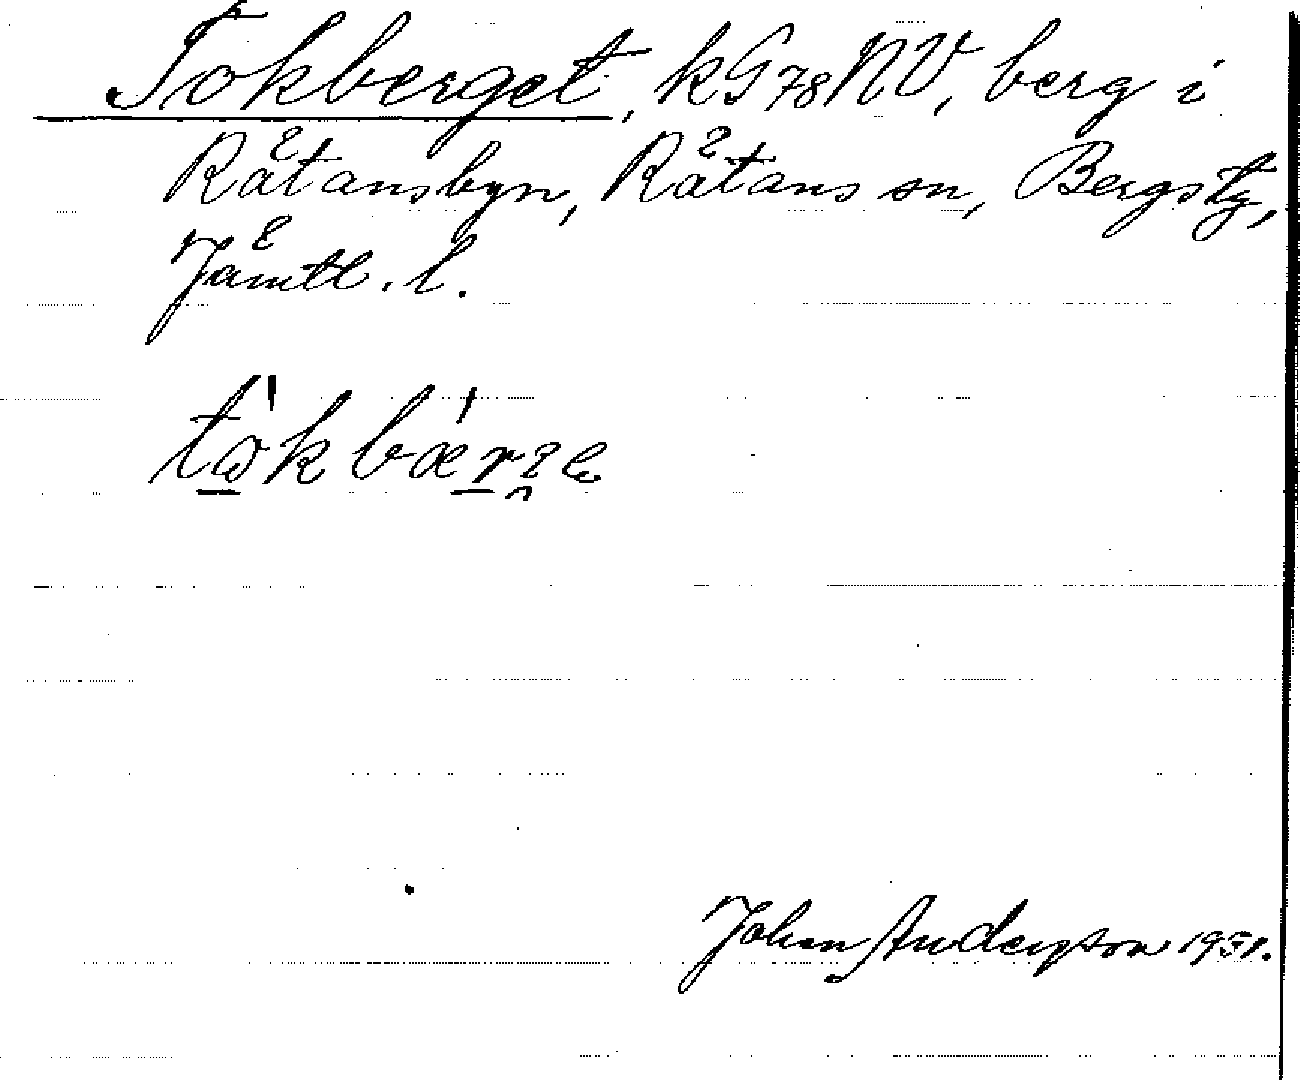 Tokberget, kG78NV, berg i
Råtansbyn, Råtans sn, Bergs tg,
Jämtl. l.
Johan Anderson 1931.